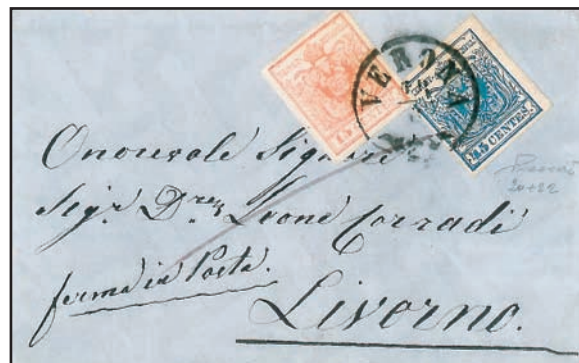 VERONA
15 CENTES.
45 CENTES.
Onorevole Signore
Sigr. Dre. Leone Corradi
ferma in Posta.
Livorno.
20+22